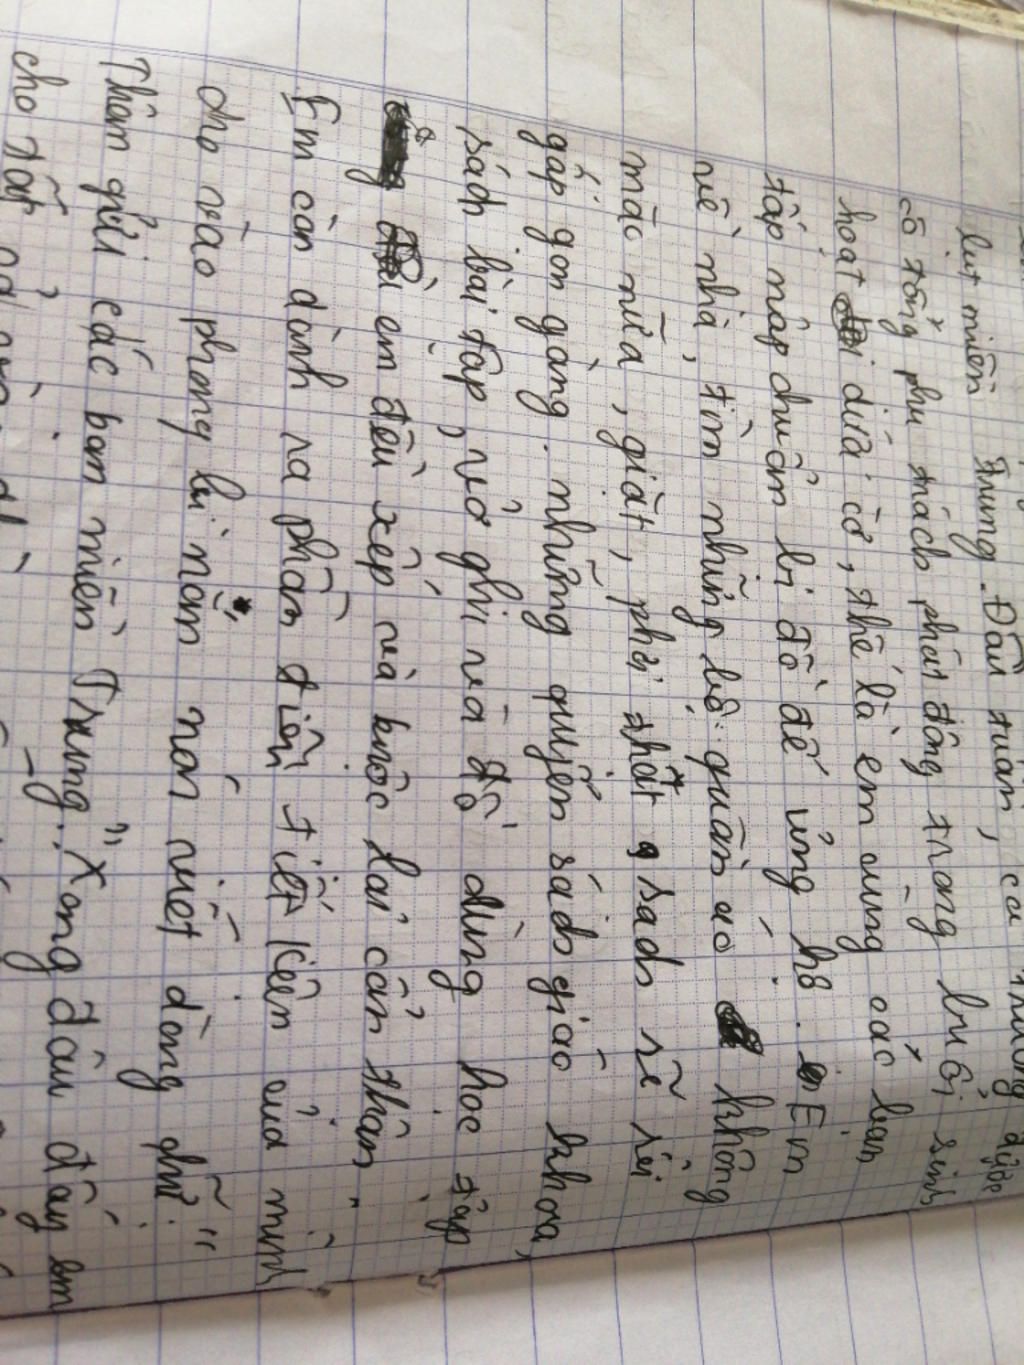 lụt miền Trung. Đầu tuần, cả trường được
cô tổng phụ trách phát động trong buổi sinh
hoạt dưới cờ, thế là em cùng các bạn
tấp nập chuẩn bị đồ để ủng hộ. Em
về nhà, tìm những bộ quần áo không
mặc nữa, giặt, phơi thật sạch sẽ rồi
gấp gọn gàng. những quyển sách giáo khoa,
sách bài tập, vở ghi và đồ dùng học tập
cũ em đều xếp và bọc lại cẩn thận.
Em còn dành ra phần tiền tiết kiệm của mình
cho vào phong bì nắn nót viết dòng chữ: "
Thâm gửi các bạn miền Trung". Xong đâu đấy em
cho tất cả